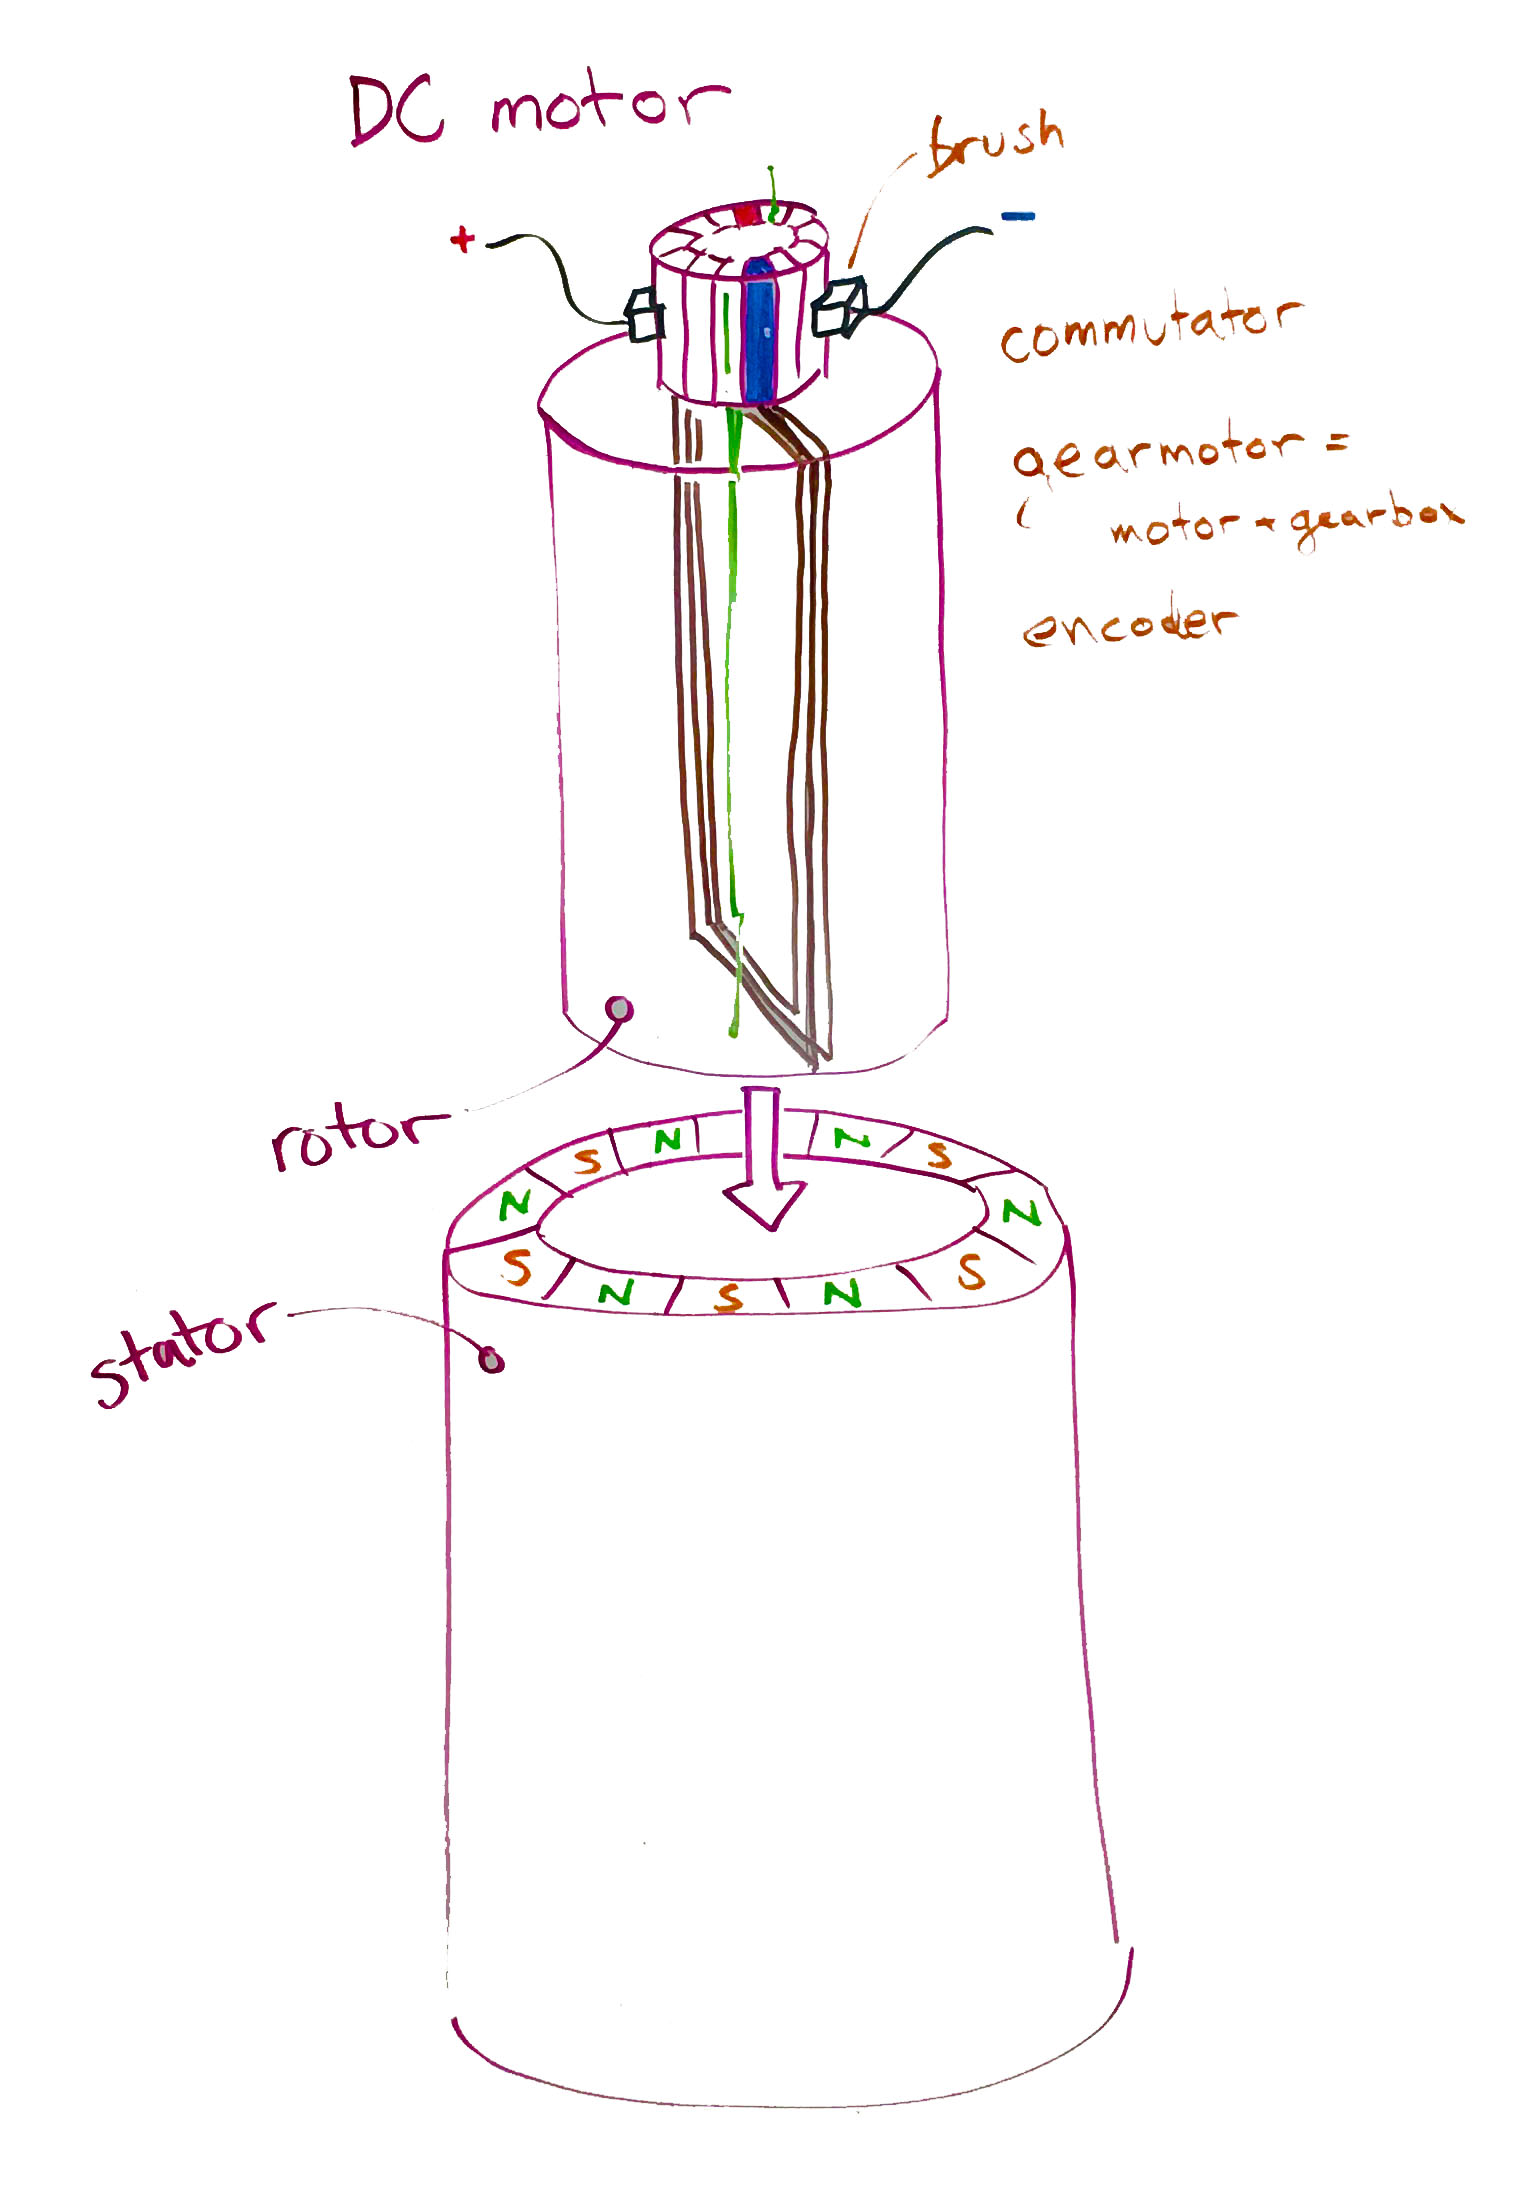 DC motor
brush
+
−
commutator
gearmotor =
motor + gearbox
encoder
rotor
N
N
S
S
N
N
S
S
N
S
N
stator